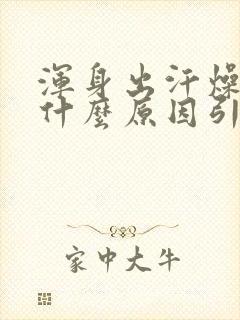 渾身出汗燥
什麼原因引
家中大牛